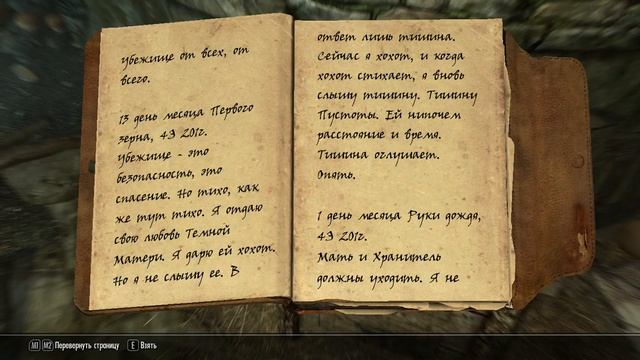 убежище от всех, от
всего.
13 день месяца Первого
зерна, 4Э 201г.
Убежище - это
безопасность, это
спасение. Но тихо, как
же тут тихо. Я отдаю
свою любовь Темной
Матери. Я дарю ей хохот.
Но я не слышу ее. В
ответ лишь тишина.
Сейчас я хохот, и когда
хохот стихает, я вновь
слышу тишину. Тишину
Пустоты. Ей нипочем
расстояние и время.
Тишина оглушает.
Опять.
1 день месяца Руки дождя,
4Э 201г.
Мать и Хранитель
должны уходить. Я не
M1 M2 Перевернуть страницу E Взять